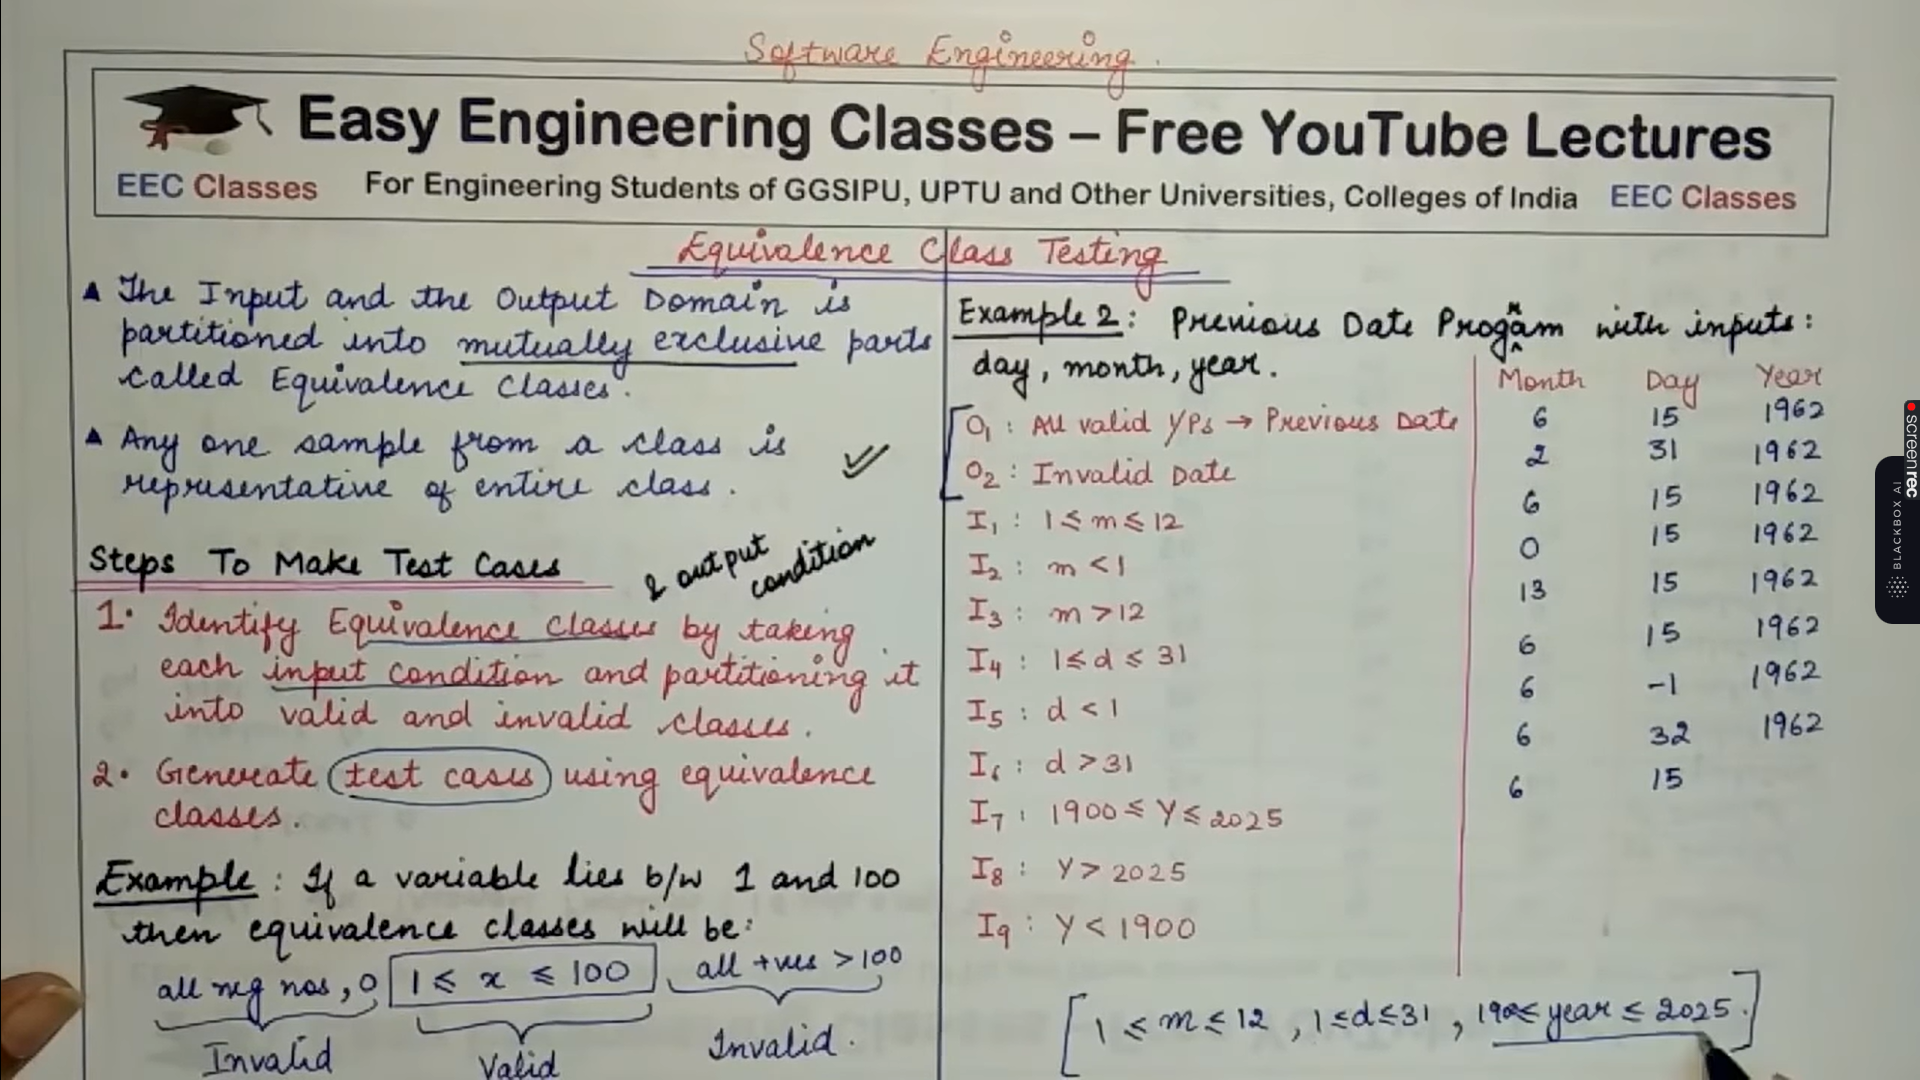 Software Engineering.
Easy Engineering Classes – Free YouTube Lectures
EEC Classes For Engineering Students of GGSIPU, UPTU and Other Universities, Colleges of India EEC Classes
Equivalence Class Testing
▲ The Input and the Output Domain is
partitioned into mutually exclusive parts
called Equivalence Classes.
▲ Any one sample from a class is
representative of entire class.
Steps To Make Test Cases
& output
condition
1. Identify Equivalence classes by taking
each input condition and partitioning it
into valid and invalid classes.
2. Generate test cases using equivalence
classes.
Example : If a variable lies b/w 1 and 100
then equivalence classes will be:
all neg nos, 0 1 ≤ x ≤ 100 all +ves > 100
Invalid Valid Invalid.
Example 2: Previous Date Progam with inputs:
day, month, year.
O1 : All valid I/Ps → Previous Date
O2 : Invalid Date
I1 : 1 ≤ m ≤ 12
I2 : m < 1
I3 : m > 12
I4 : 1 ≤ d ≤ 31
I5 : d < 1
I6 : d > 31
I7 : 1900 ≤ Y ≤ 2025
I8 : Y > 2025
I9 : Y < 1900
Month Day Year
6 15 1962
2 31 1962
6 15 1962
0 15 1962
13 15 1962
6 15 1962
6 -1 1962
6 32 1962
6 15
[1 ≤ m ≤ 12, 1 ≤ d ≤ 31, 1900 ≤ year ≤ 2025.]
BLACKBOX AI
screenrec